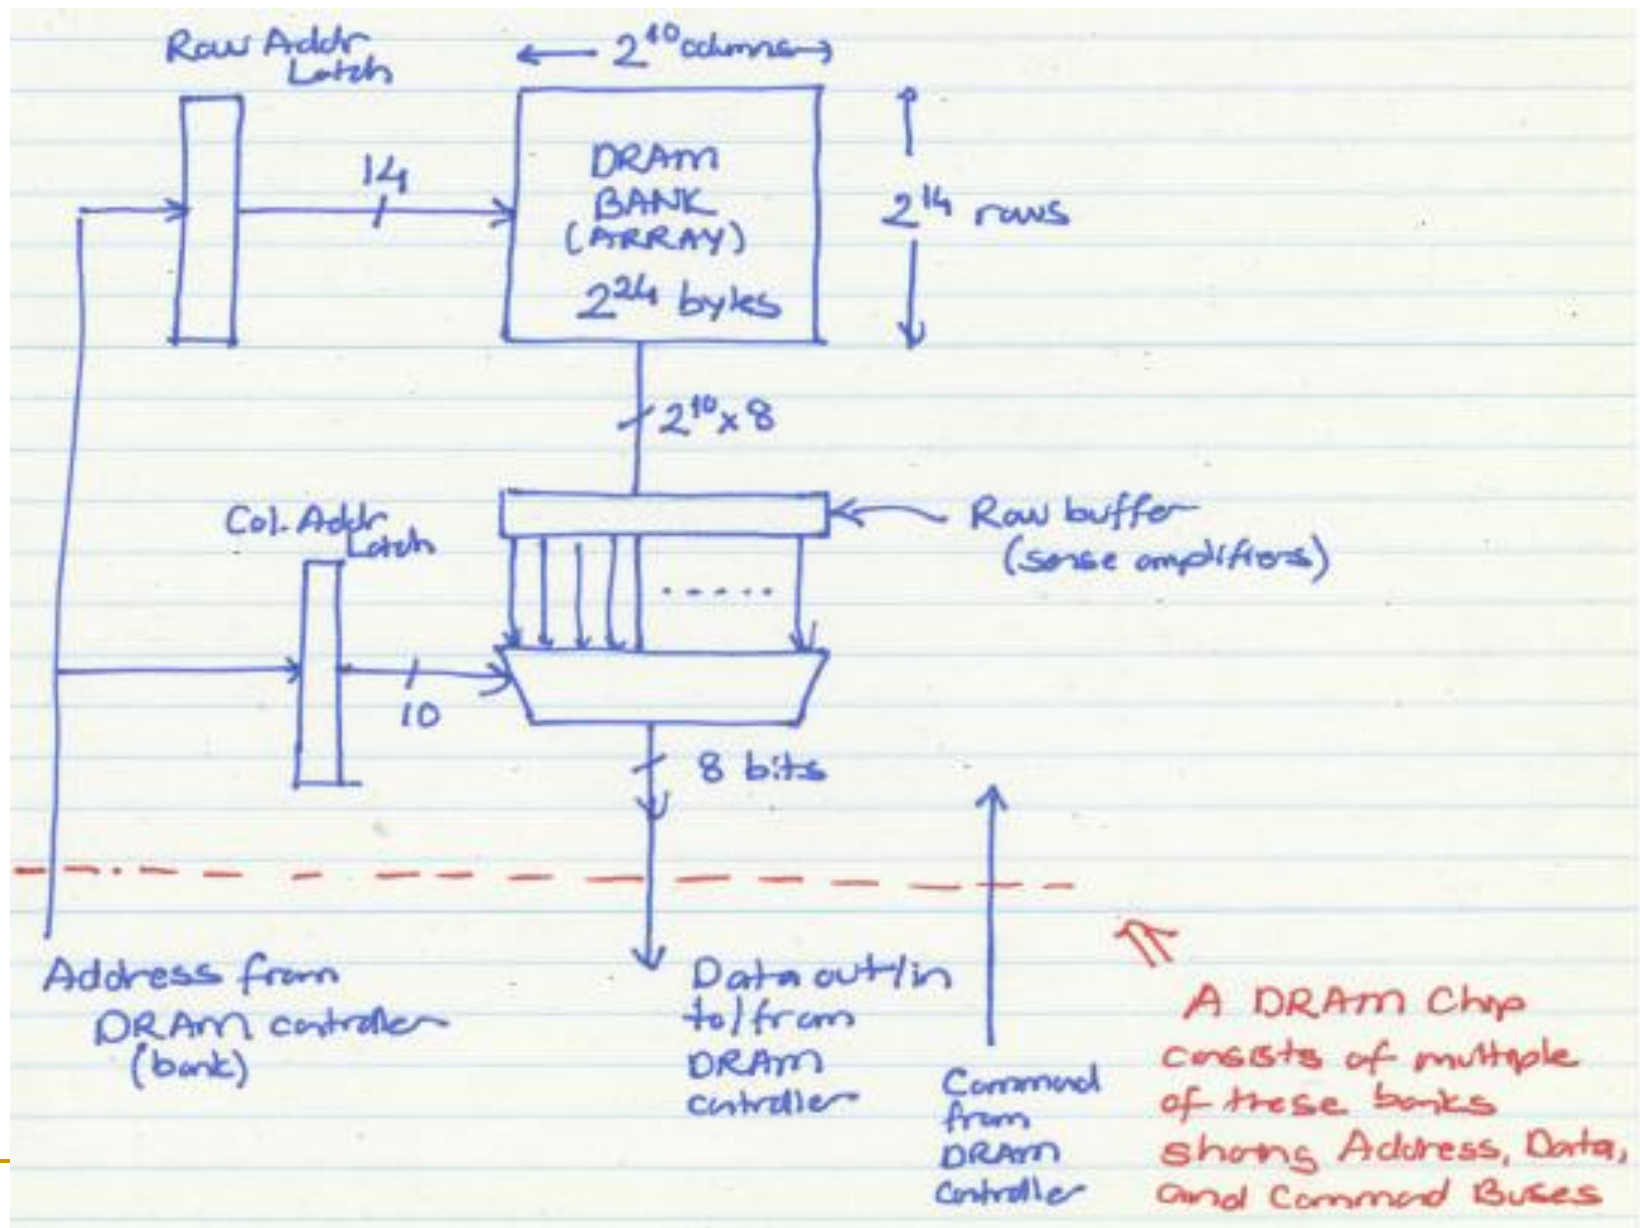 Row Addr
Latch
2^10 columns
14
DRAM
BANK
(ARRAY)
2^24 bytes
2^14 rows
2^10 x 8
Col. Addr
Latch
Row buffer
(sense amplifiers)
10
8 bits
Address from
DRAM controller
(bank)
Data out/in
to/from
DRAM
controller
Command
from
DRAM
Controller
A DRAM Chip
consists of multiple
of these banks
sharing Address, Data,
and Command Buses